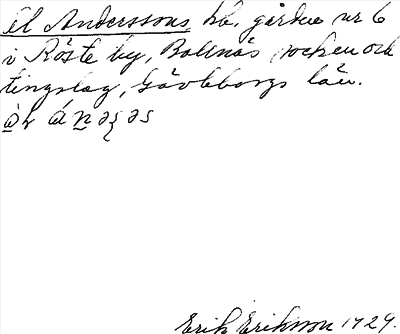 el Anderssons, hå, gården nr 6
i Röste by, Bollnäs socken och
tingslag, Gävleborgs län.
Erik Erikson 1929.